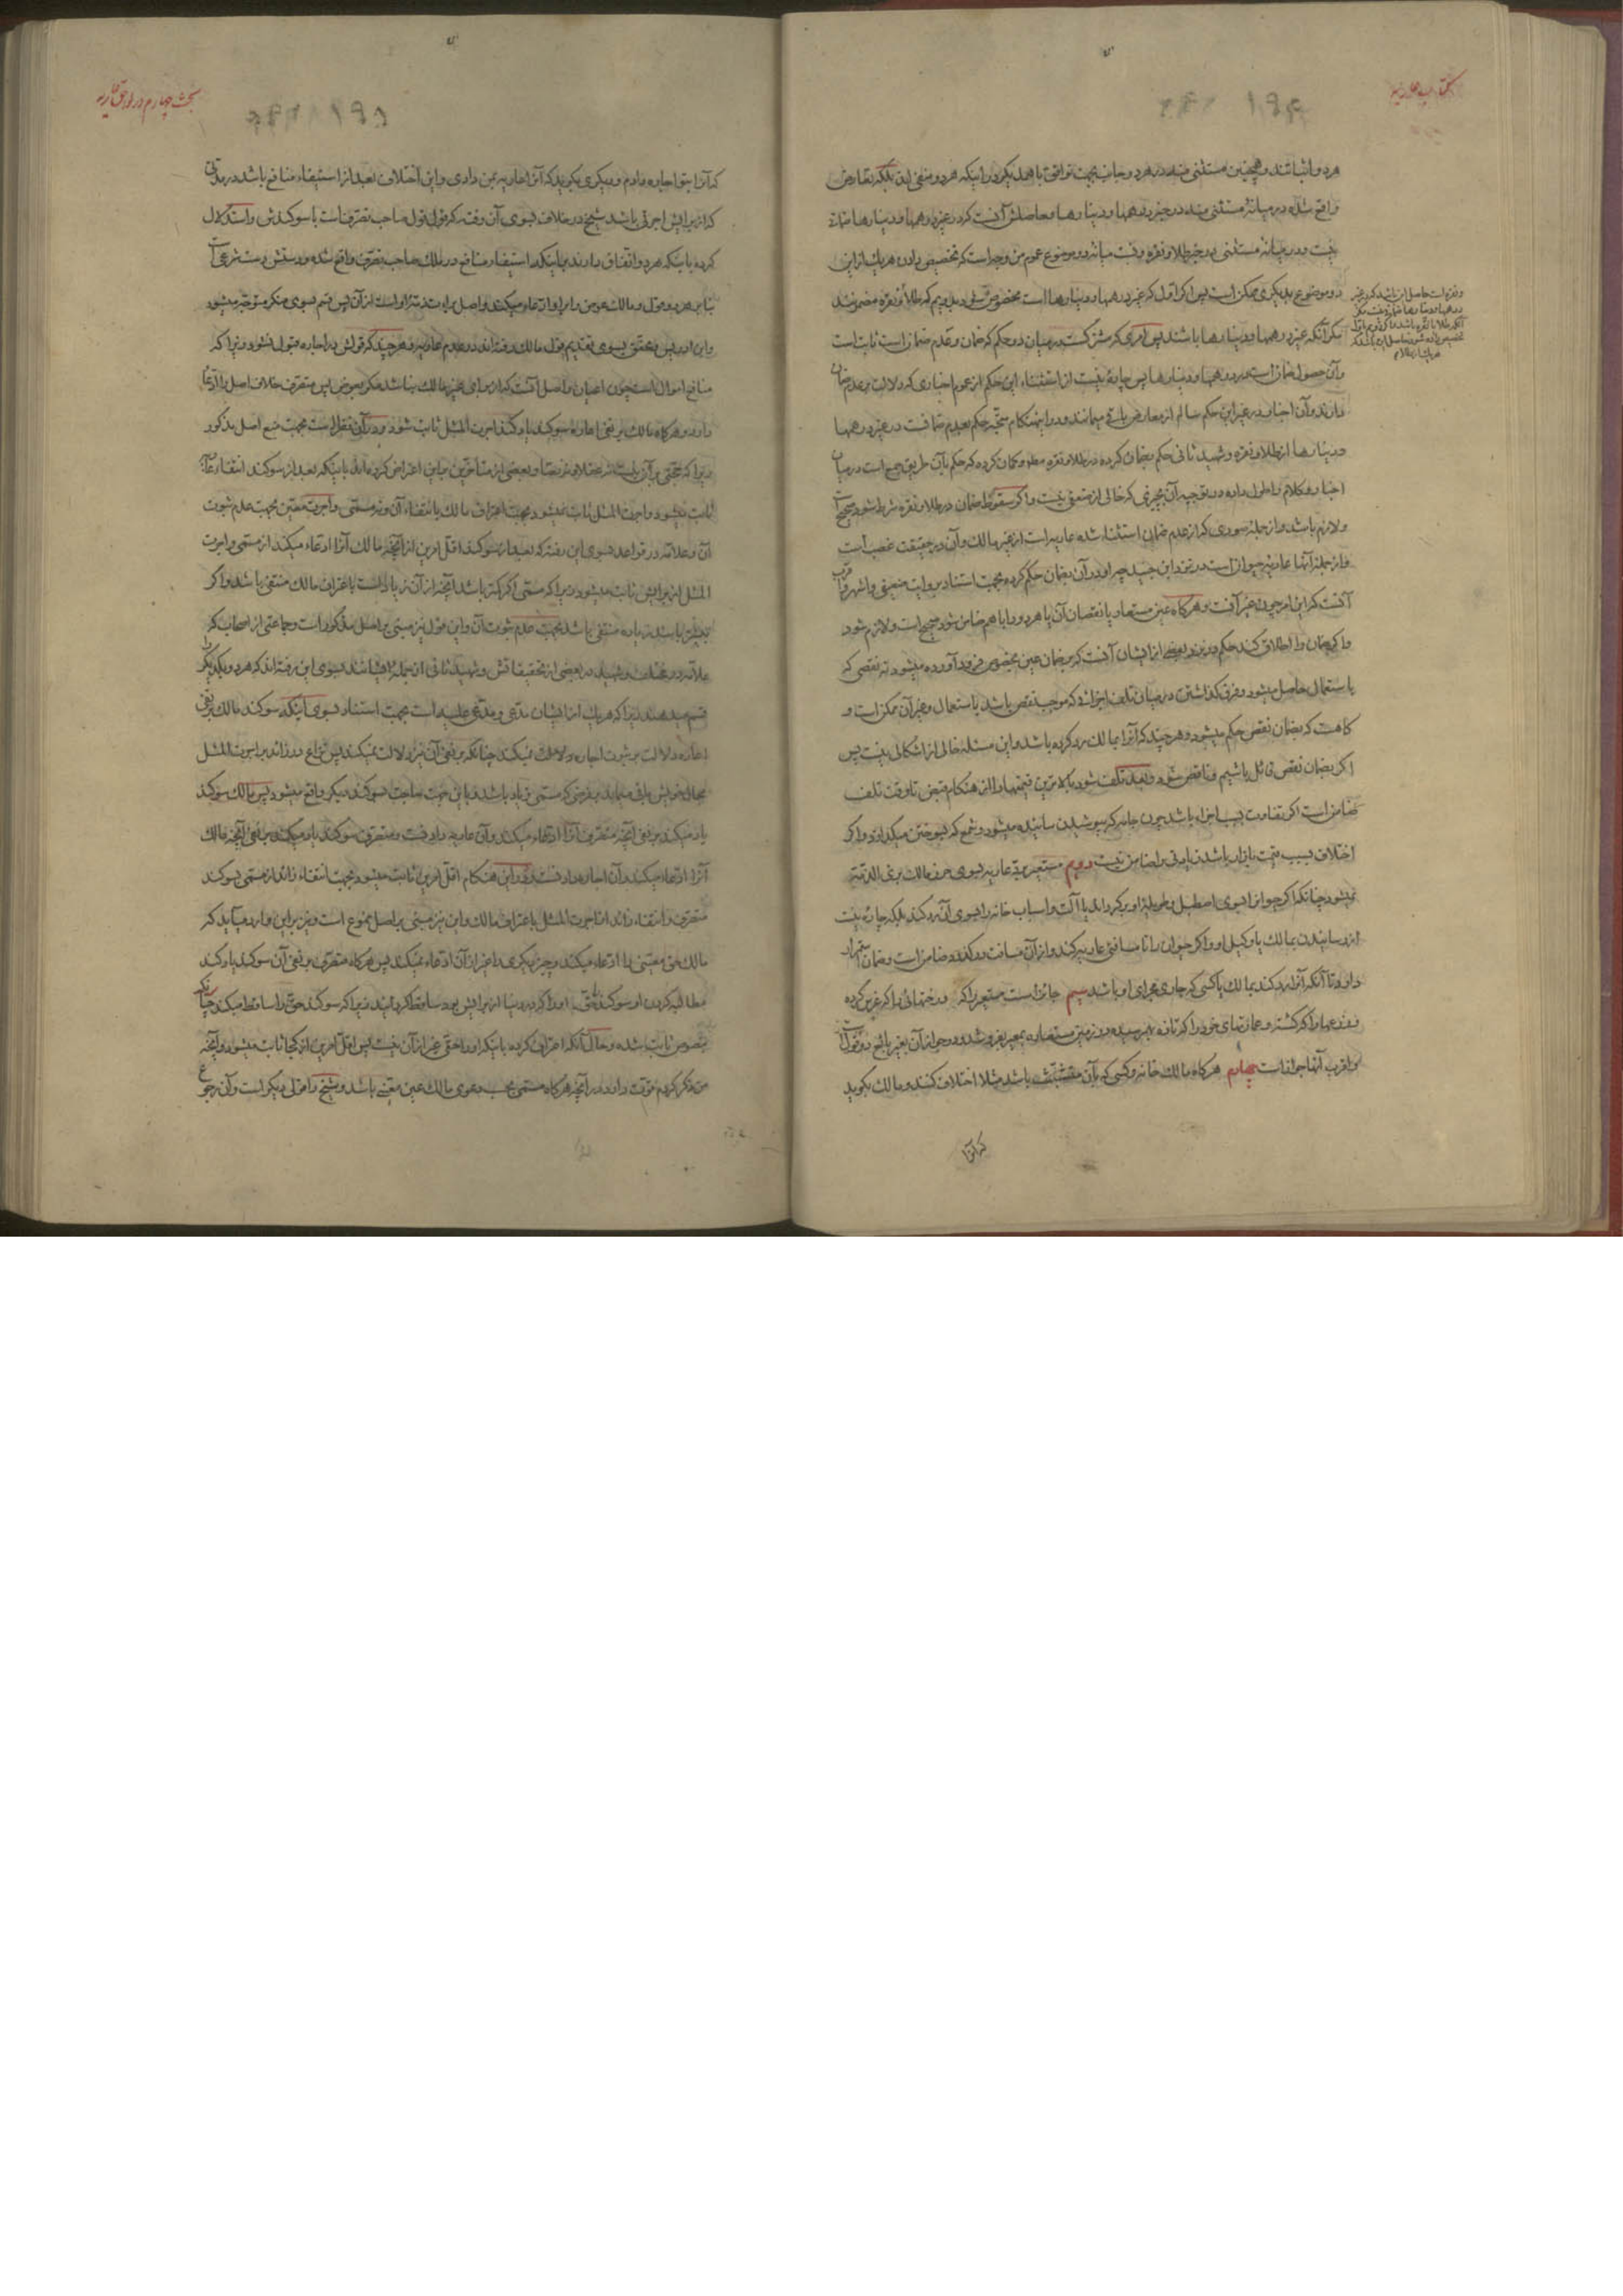 کتاب عاریه
هر دو اثباتند و همچنین مستثنی منه در هر دو جانب بجهت توافق با همدیگر در اینکه هر دو منفی اند بلکه تعارض
واقع شده در میانهٔ مستثنی منه در خبر درهمها و دینارها و حاصلش آنست که در غیر درهمها و دینارها ضمان
نیست و در میانه مستثنی در خبر طلا و نقره و نسبت میانه دو موضوع عموم من وجه است که تخصیص دادن هر یک از این
دو موضوع بدیگری ممکن است پس اگر اول که غیر درهمها و دینارها است مخصوص
مگر آنکه غیر درهمها و دینارها باشند پس امری که مشترکست در میان دو حکم که ضمان و عدم ضمان است ثابت است
و آن حصول ضمان است در درهمها و دینارها پس چارهٔ نیست از استثناء این حکم از عموم اخباری که دلالت بر عدم ضمان
دارند و آن اخبار در غیر این حکم سالم از معارض باقی میمانند و در اینهنگام متجه حکم بعدم ضمانست در غیر درهمها
و دینارها از طلا و نقره و شهید ثانی حکم بضمان کرده در طلا و نقره مطلقا و گمان کرده که حکم بآن طریق جمع است در میان
اخبار و کلام را طول داده در توجیه آن بچیزی که خالی از ضعفی نیست و اگر سقوط ضمان در طلا و نقره شرط شود صحیح است
و لازم باشد و از جمله صوری که از عدم ضمان استثناء شده عاریه است از غیر مالک و آن در حقیقت غصب است
و از جمله آنها عاریه حیوان است در نزد ابن جنید چه او در آن بضمان حکم کرده بجهت استناد بروایت ضعیفی و اشهر و اقرب
آنست که این امر چون غیر آنست و هرگاه عین مستعار یا نقصان آن یا هر دو را با هم ضامن شود صحیح است و لازم شود
و اگر ضمان را اطلاق کند حکم در نزد بعضی از ایشان آنست که بر ضمان عین بخصوص فرود آورده میشود نه نقصی که
باستعمال حاصل میشود و فرق گذاشتن در میان تلف اجزائی که موجب نقص باشد باستعمال و غیر آن ممکن است و
گاهست که بضمان نقص حکم میشود و هر چند که آنرا بمالک رد کرده باشد و این مسئله خالی از اشکالی نیست پس
اگر بضمان نقص قائل باشیم و ناقص شود و بعد تلف شود بالاترین قیمتها را از هنگام قبض تا وقت تلف
ضامن است اگر تفاوت بسبب اجزاء باشد چون جامه که بپوشیدن سائیده میشود و شمع که بسوختن میگدازد و اگر
اختلاف بسبب قیمت بازار باشد زیادتی را ضامن نیست دویم مستعیر برد عاریه بسوی حرز مالک بری الذمه
نمیشود چنانکه اگر حیوان را بسوی اصطبل و طویلهٔ او برگرداند یا آلت و اسباب خانه را بسوی آن رد کند بلکه چاره نیست
از رسانیدن بمالک یا وکیل او و اگر حیوان را تا مسافتی عاریه کند و از آن مسافت درگذرد ضامن است و ضمان استمرار
دارد تا آنکه آنرا رد کند بمالک یا کسی که جاری مجرای او باشد سیم جائز است مستعیر را که درختهائی را که غرس کرده
و زرعها را که کشته و عمارتهای خود را که تازه بهم رسیده در زمین مستعاره بمعیر بفروشد و در جواز آن بغیر بایع دو قول است
و اقرب آنها جواز است چهارم هرگاه مالک خانه و کسی که بآن متشبث باشد مثلا اختلاف کنند و مالک بگوید
که آنرا
بحث چهارم در لواحق عاریه
که آنرا بتو اجاره دادم و دیگری بگوید که آنرا عاریه بمن دادی و این اختلاف بعد از استیفاء منافع باشد در مدتی
که از برایش اجرتی باشد شیخ در خلاف بسوی آن رفته که قول قول صاحب تصرف است با سوگندش و استدلال
کرده باینکه هر دو اتفاق دارند براینکه استیفاء منافع در ملک صاحب تصرف واقع شده و دستش دست شرعی است
بنا بر هر دو قول و مالک عوض را بر او ادعاء میکند و اصل برائت ذمه او است از آن پس قسم بسوی منکر متوجه میشود
و ابن ادریس و محقق بسوی تقدیم قول مالک رفته اند در عدم عاریه و هر چند که قولش در اجاره قبول نشود زیرا که
منافع اموال است چون اعیان و اصل آنست که از برای غیر مالک نباشد مگر بعوض پس متصرف خلاف اصل را ادعا
دارد و هرگاه مالک بر نفی اعاره سوگند یاد کند اجرت المثل ثابت شود و در آن نظر است بجهت منع اصل مذکور
زیرا که حجتی بر آن نیست نه عقلا و نه نصا و بعضی از متأخرین بر این اعتراض کرده اند باینکه بعد از سوگند انتفاء عاریه
ثابت میشود و اجرت المثل ثابت نمیشود بجهت اعتراف مالک بانتفاء آن و نه مسمی و اجرت معین بجهت عدم ثبوت
آن و علامه در قواعد بسوی این رفته که بعد از سوگند اقل امرین از آنچه مالک آنرا ادعاء میکند از مسمی و اجرت
المثل از برایش ثابت میشود زیرا که مسمی اگر کمتر باشد آنچه از آن زیاد است باعتراف مالک منتفی باشد و اگر
بیشتر باشد زیاده منتفی باشد بجهت عدم ثبوت آن و این قول نیز مبنی بر اصل مذکور است و جماعتی از اصحاب که
علامه در مختلف و شهید در بعضی از تحقیقاتش و شهید ثانی از جمله ایشانند بسوی این رفته اند که هر دو یکدیگر را
قسم میدهند زیرا که هر یک از ایشان مدعی و مدعی علیه است بجهت استناد بسوی اینکه سوگند مالک بر نفی
اعاره دلالت بر ثبوت اجاره نمیکند چنانکه بر نفی آن نیز دلالت نمیکند پس نزاع در زائد بر اجرت المثل
بحال خویش باقی میماند بفرضی که مسمی زیاد باشد و باین جهت حاجت بسوگند دیگر واقع میشود پس مالک سوگند
یاد میکند بر نفی آنچه متصرف آنرا ادعاء میکند و آن عاریه دادنست و متصرف سوگند یاد میکند بر نفی آنچه مالک
آنرا ادعاء میکند و آن اجاره دادنست و در این هنگام اقل امرین ثابت میشود بجهت انتفاء زائد از مسمی بسوگند
متصرف و انتفاء زائد از اجرت المثل باعتراف مالک و این نیز مبنی بر اصل ممنوع است و نیز بر این وارد میآید که
مالک حق معینی را ادعاء میکند و چیز دیگری را غیر از آن ادعاء نمیکند پس هرگاه متصرف بر نفی آن سوگند یاد کند
مطالبه کردن او سوگند حقی او را که در دنیا از برایش بود ساقط گردانید زیرا که سوگند حق را ساقط میکند چنانکه
بنصوص ثابت شده و حال آنکه اعتراف کرده باینکه او را حقی غیر از آن نیست پس اقل امرین از کجا ثابت میشود و آنچه
من ذکر کردم قوت دارد در آنچه هرگاه مسمی بحسب دعوی مالک عین معینی باشد و شیخ را قولی دیگر است و آن رجوع